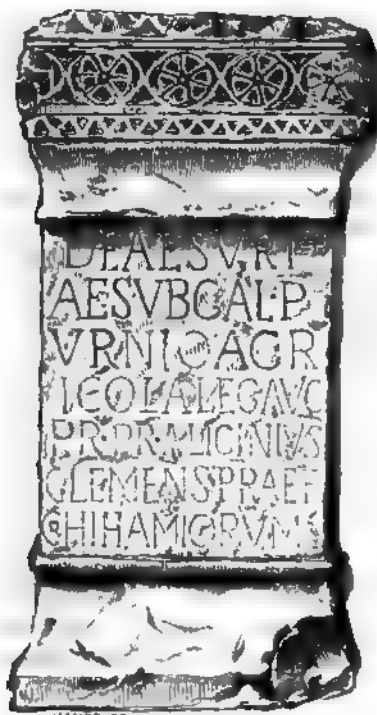 DEAESVRI
AESVBCALP
VRNIOAGR
ICOLALEGAVG
PR·PR·ALICINIVS
CLEMENSPRAEF
CHIHAMIORVM